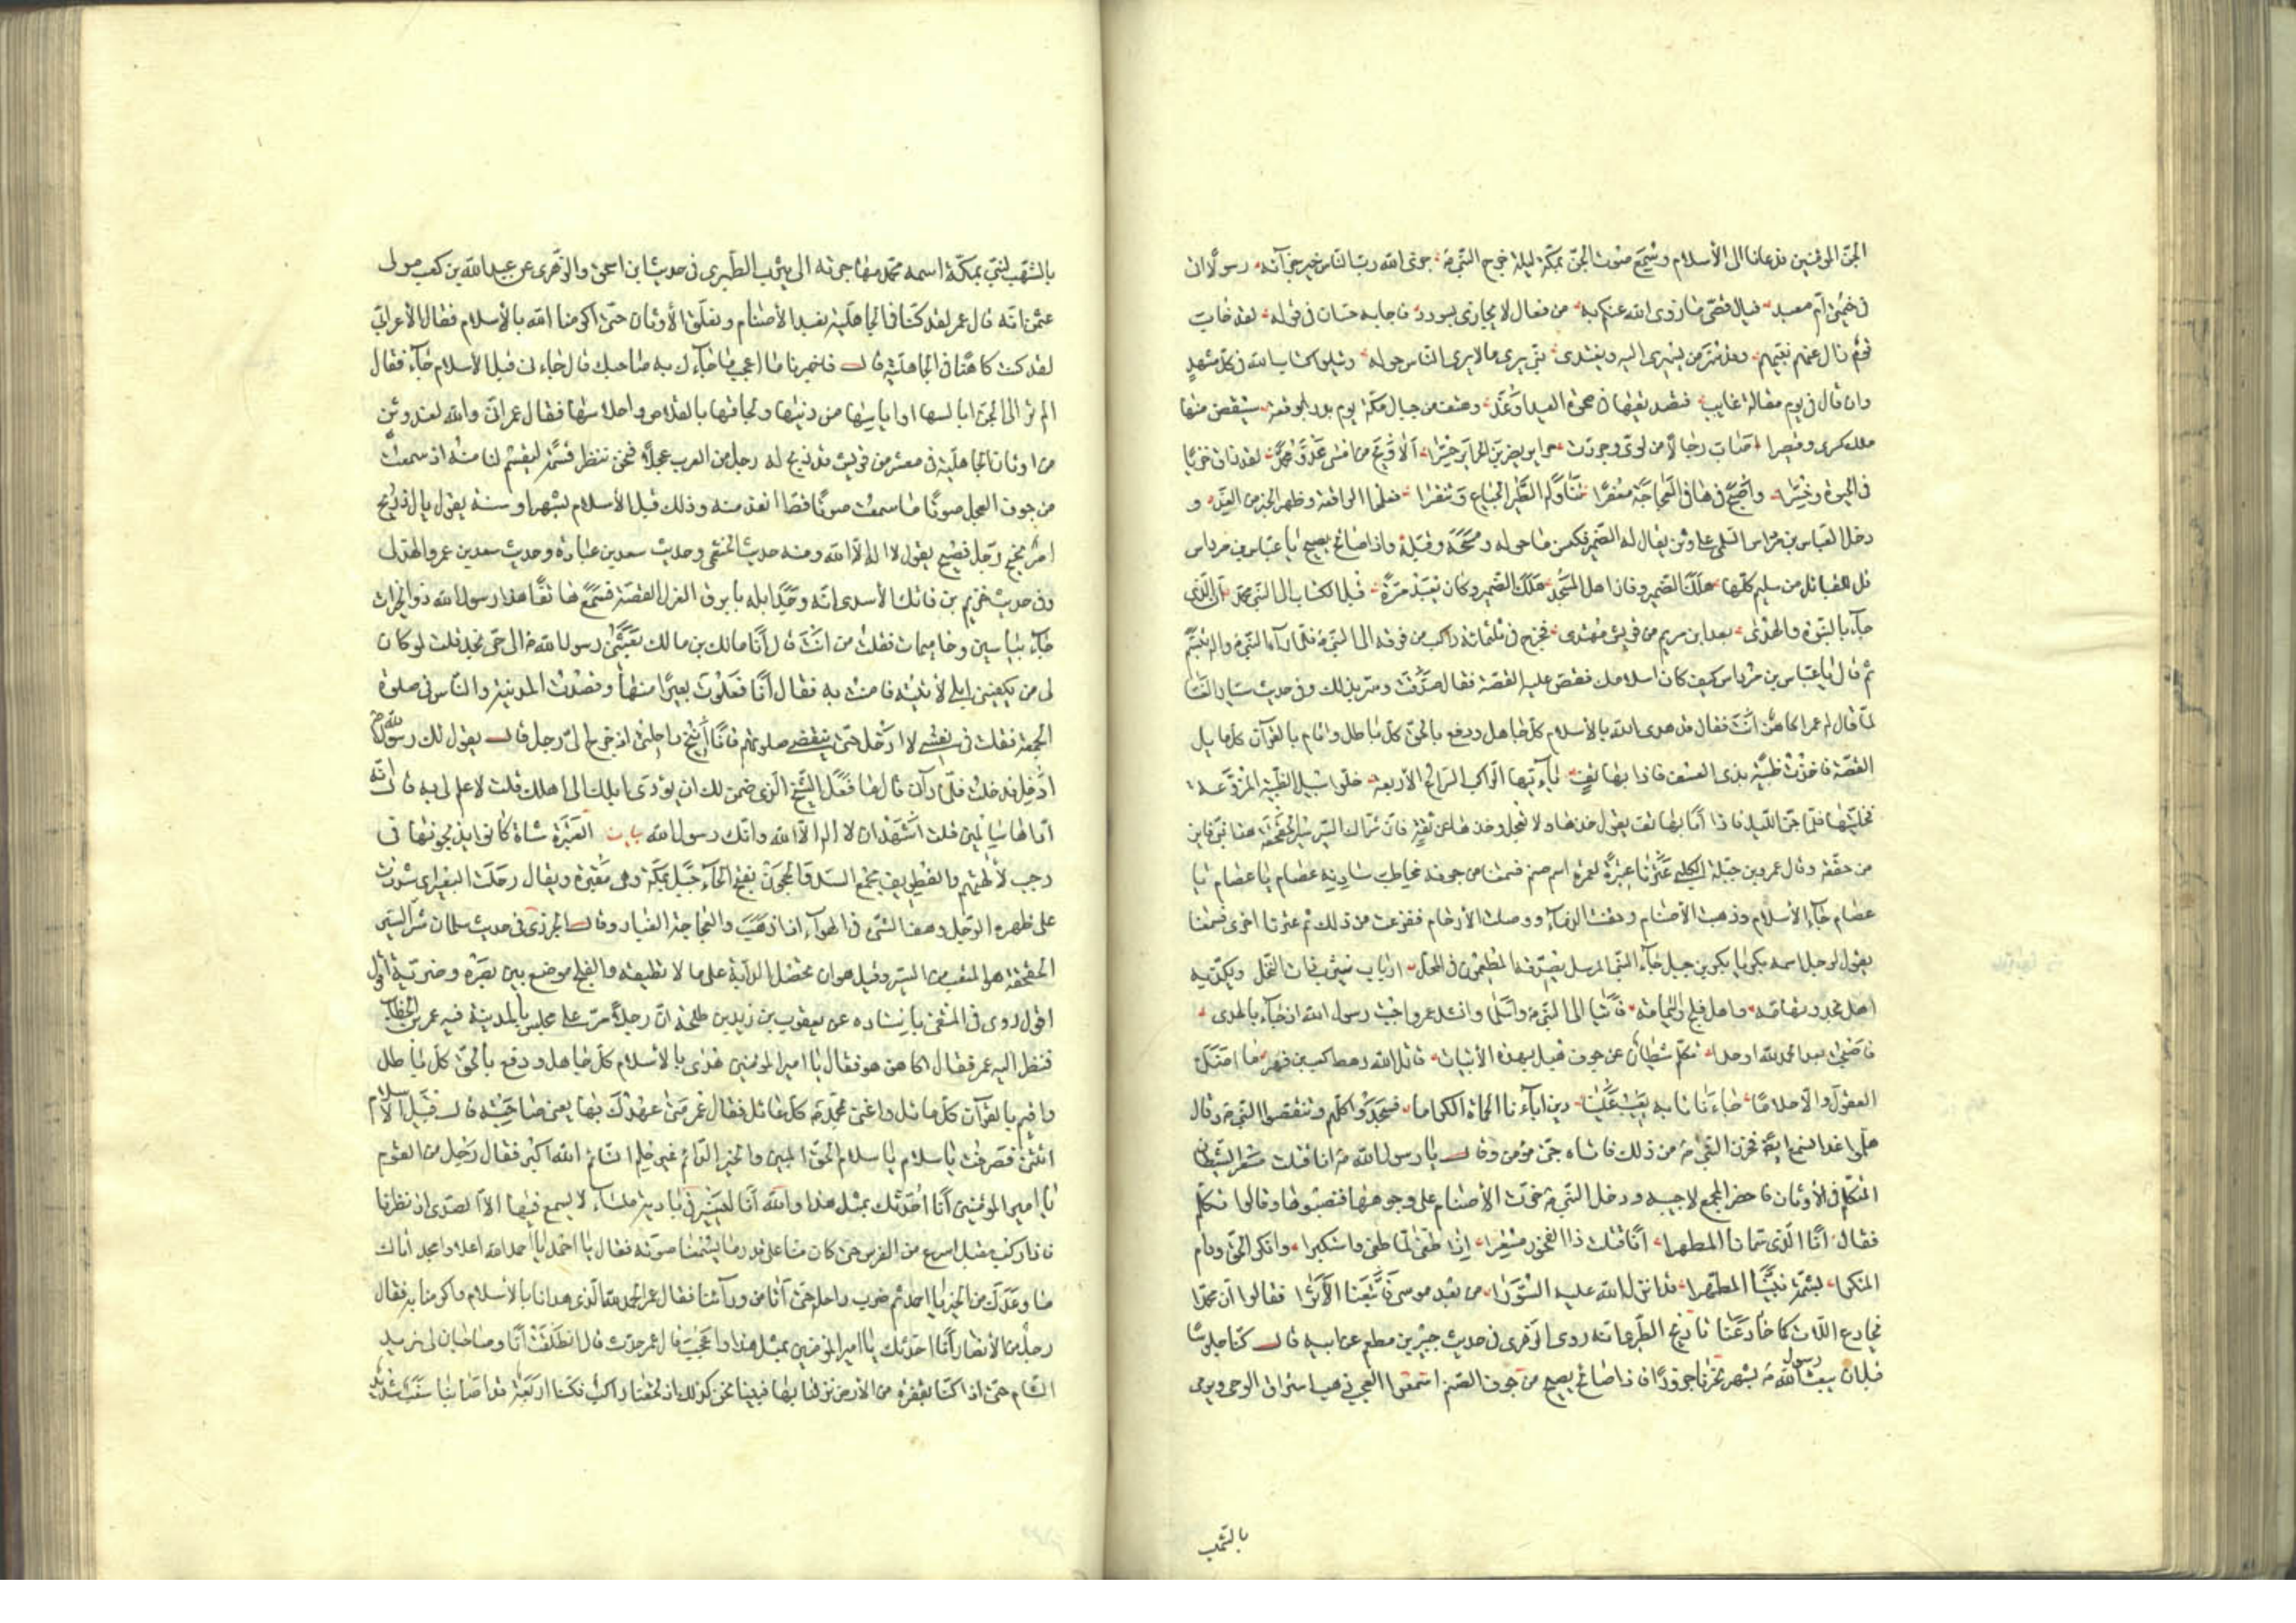 الجنّ المؤمنين قد دعانا الى الأسلام وسُمِع صوت الجنّ بمكّة ليلة خرج النبيّ ص جزى الله ربّ الناس خير جزآئه رسولا اتى
فى خيمتى أم معبد فيال قصىّ ما زوى الله عنكم به من فعال لا يجازى بسودد فاجابه حسان فى قوله لقد خاب
قوم زال عنهم نبيّهم وقدّس من يسرى اليه ويغتدى نبىّ يرى ما لا يرى الناس حوله ويتلو كتاب الله فى كل مشهدٍ
وان قال فى يوم مقالة غايب فتصديقها فى ضحوة العيد او غد وهتف من جبال مكة يوم بدر بوقعة سينقض منها
ملك كسرى وقيصرا اصابت رجالا من لوىّ وجردت حراير يضربن الحرائر حسّرا الا ويح من امسى عدوّ محمّد لقد ذاق خزيا
فى الحيوة وخسّرا واصبح فى هافى العجاجة معفرا تناوله الطير الجياع وتنقرا فعلموا الواقعة وظهر الخبز من الغد و
دخل العباس بن مرداس السلمى على وثن يقال له الضمير فكنس ما حوله ومسحه وقبّله واذا صائح يصيح يا عباس بن مرداس
قل للقبائل من سليم كلّها هلك الضمير وفاز اهل المسجد هلك الضمير وكان يعبد مرّة قبل الكتاب الى النبى محمّد انّ الذى
جآء بالنبوّة والهدى بعد ابن مريم من قريش مهتدى فخرج فى ثلثمائة راكب من قومه الى النبى ص فلمّا رآه النبى ص واله تبسّم
ثم قال يا عباس بن مرداس كيف كان اسلامك فقصّ عليه القصّة فقال صدّقت وسرّ بذلك وفى حديث سيار الغسّا
لمّا قال له عمر اكاهن انت فقال قد هدى الله بالأسلام كل جاهل ودفع بالحق كل باطل واقام بالقرآن كل مايل
القصّة فاخذت ظبية بذى العسف فاذا بهاتف يا ايّها الراكب السراع الأربعة خلّوا سبيل الظبية المروّعة
فخلّيتها فلمّا جنّ الليل فاذا انا بهاتف يقول خذها ولا تعجل وخذها عن ثقة فان شرّ السير سير الحقحقة هذا نبى فايز
من حقّقه وقال عمرو بن جبلة الكلبى عترنا عتيرة لعمرة اسم صنم فسمعنا من جوفه مخاطب سادنه عصام يا عصام يا
عصام جآء الأسلام وذهب الأصنام وحقنت الدمآء ووصلت الأرحام ففزعت من ذلك ثم عترنا اخرى فسمعنا
يقول لرجل اسمه بكر يا بكر بن جبل جآء النبى المرسل يصدّقه المطعمون فى المحل ارباب يثرب ذات النخل ويكذّبه
اهل نجد وتهامة واهل فلج واليمامة فأتيا الى النبى ص واسلما وانشد عمرو اجبت رسول الله اذ جآء بالهدى
فاصبحت بعد الحمد لله اوحدا تكلّم شيطان من جوف هبل بهذه الأبيات قاتل الله رهط كعب بن فهر ما اضلّ
العقول والأحلاما جاءنا تائه يعيب علينا دين ابآءنا الحماة الكراما فسجدوا كلّهم وتنقّصوا النبى ص وقال
هلمّوا غدا لنسمع ايضًا فحزن النبى ص من ذلك فاتاه جنّى مؤمن وقال يا رسول الله ص انا قتلت مسعر الشيطان
المتكلّم فى الأوثان فاحضر المجمع لاجيبه ودخل النبى ص خرّت الأصنام على وجوهها فنصبوها وقالوا تكلّم
فقال انا الذى سمّانى المطهرا انا قتلت ذا الفخور مسعرا اذا طغى لمّا طغى واستكبرا وانكر الحق ورام
المنكرا بشتمه نبيّنا المطهّرا قد انزل الله عليه السّورا من بعد موسى فاتّبعنا الأثرا فقالوا انّ محمّدا
يخادع اللّات كما خادعنا تاريخ الطبرى انه روى الزهرى فى حديث جبير بن مطعم عن ابيه قال كنّا جلوسًا
قبل ان يبعث رسول الله ص بشهر نحرنا جزورًا فاذا صائح يصيح من جوف الصّنم اسمعوا العجب ذهب استراق الوحى ويرمى
بالشّهب
بالشّهب لنبىّ بمكّة اسمه محمّد مهاجرته الى يثرب الطبرى فى حديث ابن اسحق والزهرى عن عبد الله بن كعب مولى
عثمن انّه قال عمر لقد كنّا فى الجاهليّة نعبد الأصنام ونعلّق الأوثان حتى اكرمنا الله بالأسلام فقال الأعرابى
لقد كنت كاهنًا فى الجاهليّة قال فاخبرنا ما اعجب ما جآءك به صاحبك قال جاءنى قبل الأسلام جآء فقال
الم تر الى الجنّ ابالسها واياسها من دينها ولحاقها بالقلاص واحلاسها فقال عمر انّى والله لعند وثن
من اوثان الجاهليّة فى معشر من قريش قد ذبح له رجل من العرب عجلًا فنحن ننتظر قسمه ليقسم لنا منه اذ سمعت
من جوف العجل صوتًا ما سمعت صوتًا قطّ انفذ منه وذلك قبل الأسلام بشهر او سنة يقول يال ذريح
امر نجيح رجل فصيح يقول لا اله الّا الله ومنه حديث الخثعمى وحديث سعد بن عبادة وحديث سعد بن عمرو الهذلى
وفى حديث خزيم بن فاتك الأسدى انّه وجد ابله بابرق العزل القصّة فسمع هاتفًا هذا رسول الله ذو الخيرات
جآء بياسين وحاميمات فقلت من انت قال انا مالك بن مالك بعثنى رسول الله ص الى حىّ نجد قلت لو كان
لى من يكفينى ابلى لأتيته فامنت به فقال انا فعلوت بعيرًا منها وقصدت المدينة والناس فى صلوة
الجمعة فقلت فى نفسى لا ادخل حتى ينقضى صلوتهم فانا انيخ راحلتى اذ خرج الىّ رجل قال يقول لك رسول الله ص
ادخل فدخلت فلمّا رآنى قال ما فعل الشيخ الذى ضمن لك ان يؤدّى ابلك الى اهلك قلت لا علم لى به قال انّه
ادّاها سالمين قلت اشهد ان لا اله الّا الله وانّك رسول الله بيان العتيرة شاة كانوا يذبحونها فى
رجب لألهتهم والغطريف السيّد والحجون بفتح الحآء جبل بمكّة وهى مقبرة ويقال رحلت البعير اى شددت
على ظهره الرّحل وهفا الشّىء فى الهوآء اذا ذهب والعجاجة الغبار وقال الجزرى فى حديث سلمان شرّ السّير
الحقحقة هو المتعب من السّير وقيل هو ان تحمل الدابة على ما لا تطيقه والفلج موضع بين بصرة وضريّة
اقول روى فى المنتقى باسناده عن يعقوب بن زيد بن طلحة انّ رجلًا مرّ على مجلس بالمدينة فيه عمر بن الخطّاب
فنظر اليه عمر فقال اكاهن هو فقال يا امير المؤمنين هدى بالأسلام كلّ جاهل ودفع بالحقّ كلّ باطل
واقيم بالقرآن كلّ مائل واغنى بمحمّد ص كلّ عائل فقال عمر متى عهدك بها يعنى صاحبته قال قبيل الأسلام
اتتنى فصرخت يا سلام يا سلام الحقّ المبين والخير الدائم غير حلم النائم الله اكبر فقال رجل من القوم
يا امير المؤمنين انا احدّثك بمثل هذا والله انا لنسير فى بادية ملسآء لا يسمع فيها الّا الصّدى اذ نظرنا
فاذا راكب مقبل اسرع من الفرس حتى كان منّا على قدر ما يسمعنا صوته فقال يا احمد يا احمد الله اعلا وامجد اتاك
ما وعدك من الخير يا احمد ثم ضرب راحلته حتى اتى من ورآئنا فقال عمر الحمد لله الذى هدانا بالأسلام واكرمنا به فقال
رجل من الأنصار انا احدّثك يا امير المؤمنين بمثل هذا واعجب قال عمر حدّث قال انطلقت انا وصاحبان لى نريد
الشام حتى اذا كنّا بقفرة من الأرض نزلنا بها فبينا نحن كذلك اذ لحقنا راكب فكنّا اربعة قد اصابنا سغب شديد